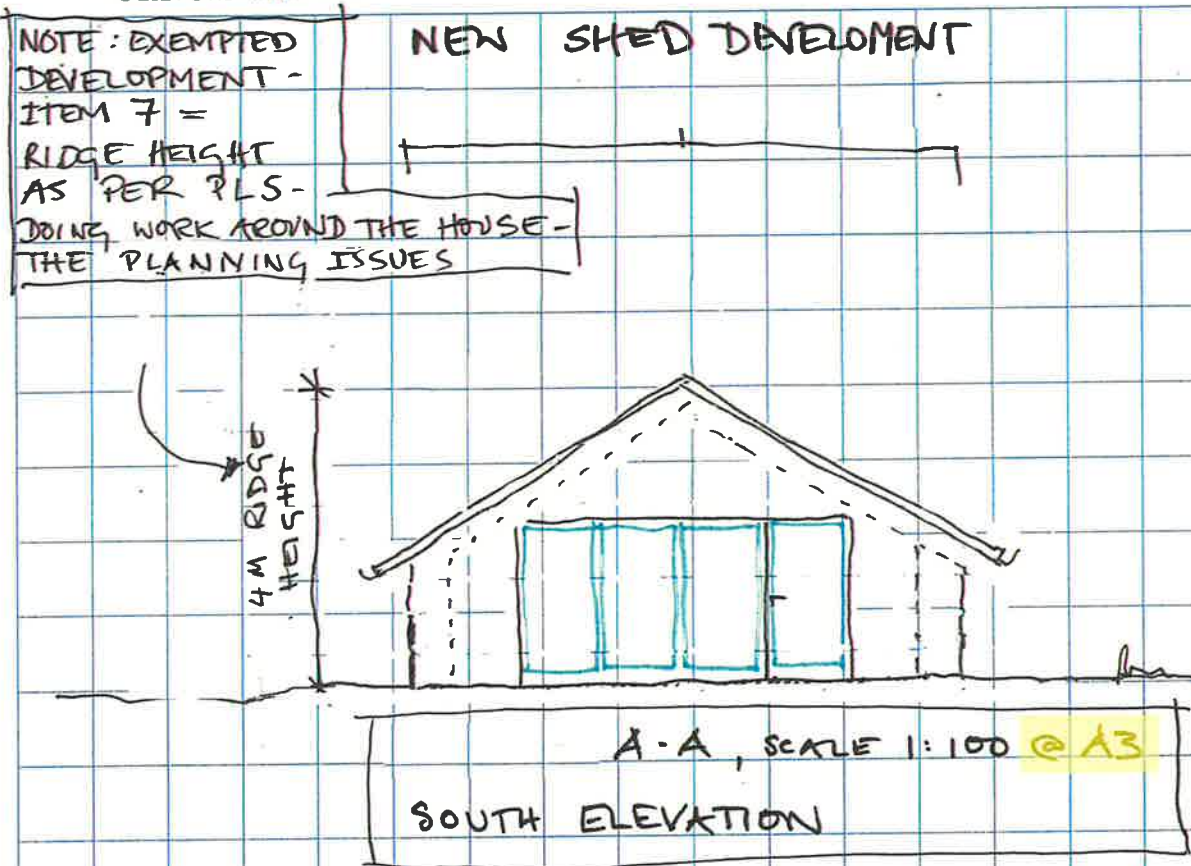 NOTE : EXEMPTED
DEVELOPMENT -
ITEM 7 =
RIDGE HEIGHT
AS PER PLS -
DOING WORK AROUND THE HOUSE -
THE PLANNING ISSUES
NEW SHED DEVELOMENT
4M RIDGE
HEIGHT
A-A, SCALE 1:100 @ A3
SOUTH ELEVATION